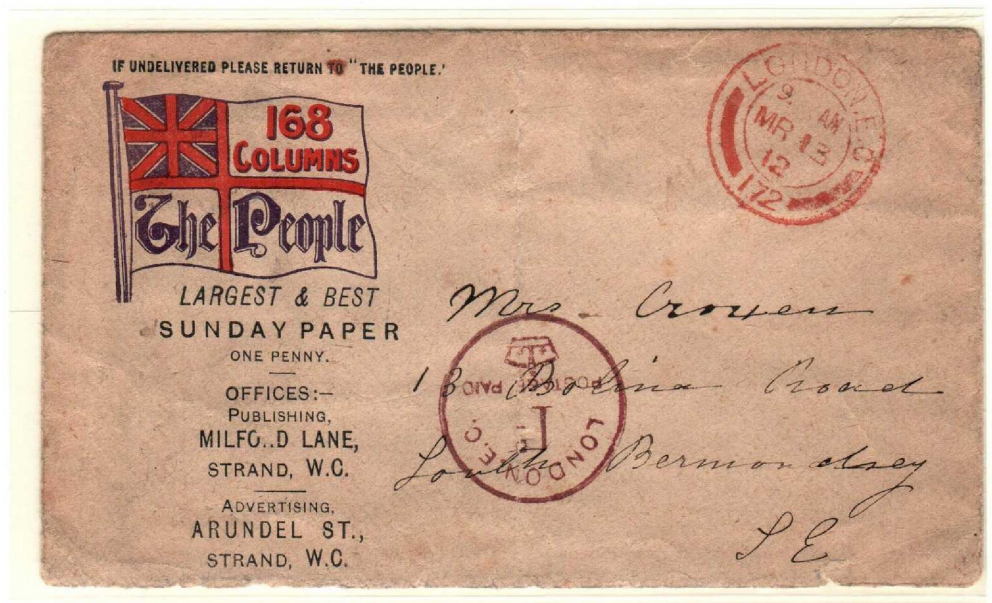 IF UNDELIVERED PLEASE RETURN TO "THE PEOPLE.'
168
COLUMNS
The People
LARGEST & BEST
SUNDAY PAPER
ONE PENNY.
OFFICES:–
PUBLISHING,
MILFO..D LANE,
STRAND, W.C.
ADVERTISING,
ARUNDEL ST.,
STRAND, W.C.
LONDON.E.C.
9 AM
MR 13
12
172
Mrs. Croxen
13 Bolina Road
South Bermondsey
S E
POSTAGE PAID
LONDON E.C.